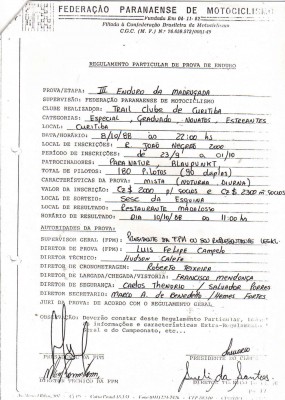 FEDERAÇÃO PARANAENSE DE MOTOCICLISMO
Filiada à Confederação Brasileira de Motociclismo
REGULAMENTO PARTICULAR DE PROVA DE ENDURO
PROVA/ETAPA: III Enduro da Madrugada
SUPERVISÃO: FEDERAÇÃO PARANAENSE DE MOTOCICLISMO
CLUBE REALIZADOR: Trail Clube de Curitiba
CATEGORIAS: Especial, Graduado, Novatos, Estreantes
LOCAL: Curitiba
DATA/HORÁRIO: 8/10/88 às 22:00 hs
LOCAL DE INSCRIÇÕES: R. João Negrão 2000
PERÍODO DE INSCRIÇÕES: de 23/9 a 01/10
PATROCINADORES: Blaupunkt
TOTAL DE PILOTOS: 180 Pilotos (90 duplas)
CARACTERÍSTICAS DA PROVA: Mista (Noturna Diurna)
VALOR DA INSCRIÇÃO: Cz$ 2000 p/ sócios e Cz$ 2300 ñ sócios
LOCAL DE SORTEIO: Sesc da Esquina
LOCAL DE RESULTADO: Restaurante Madalosso
HORÁRIO DE RESULTADO: Dia 10/10/88 às 11:00 hs
AUTORIDADES DA PROVA:
SUPERVISOR GERAL (FPM): Presidente da FPM ou seu representante legal
DIRETOR DE PROVA (FPM): Luis Felipe Campelo
DIRETOR TÉCNICO: Hudson
DIRETOR DE CRONOMETRAGEM: Roberto Teixeira
DIRETOR DE LARGADA/CHEGADA/VISTORIA: Francisco Mendonça
DIRETOR DE SEGURANÇA: Carlos / Salvador
DIRETOR SECRETÁRIO: Marco A. de Benedeto / Hermes Fortes
JURI DE PROVA: DE ACORDO COM O REGULAMENTO GERAL
OBSERVAÇÃO: Deverão constar deste Regulamento Particular,
informações e características Extra-Regulamento
e do Campeonato, etc...
DIRETOR TÉCNICO DA FPM